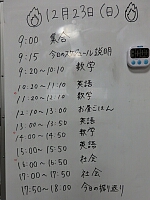 12月23日(日)
9:00 集合
9:15 今日のスケジュール説明
9:20~10:10 数学
10:20~11:10 英語
11:20~12:10 数学
12:10~13:00 お昼ごはん
13:00~13:50 英語
14:00~14:50 数学
15:00~15:50 英語
16:00~16:50 社会
17:00~17:50 社会
17:50~18:00 今日の振り返り